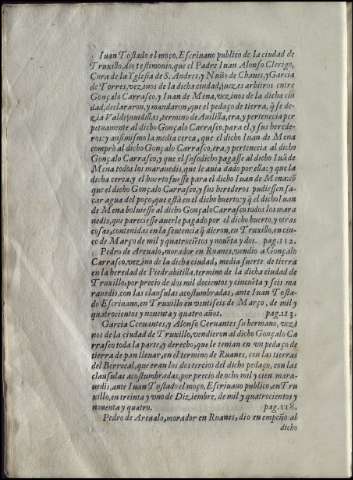 Iuan Tostado el moço, Escriuano publico de la ciudad de
Truxillo, dio testimonio, que el Padre Iuan Alonso Clerigo,
Cura de la Yglesia de S. Andres, y Nuño de Chaues, y Garcia
de Torres, vezinos de la dicha ciudad, juezes arbitros entre
Gonçalo Carrasco, y Iuan de Mena, vezinos de la dicha ciu
dad, declararon, y mandaron, que el pedaço de tierra, q̃ se de-
zia Valdepinedillas, termino de Auililla, era, y pertenecia per
petuamente al dicho Gonçalo Carrasco, para el, y sus herede-
ros; y assimismo la media cerca, que el dicho Iuan de Mena
comprò al dicho Gonçalo Carrasco, era, y pertenecia al dicho
Gonçalo Carrasco, y que el susodicho pagasse al dicho Iuã de
Mena todos los marauedis, que le auia dado por ellas; y que la
dicha cerca, y el huerto fuesse para el dicho Iuan de Mena, cõ
que el dicho Gonçalo Carrasco, y sus herederos pudiessen sa-
car agua del poço, que està en el dicho huerto; y q̃ el dicho Iuan
de Mena boluiesse al dicho Gonçalo Carrasco todos los mara
uedis, que pareciesse auerle pagado por el dicho huerto, y otras
cosas, contenidas en la sentencia q̃ dieron, en Truxillo, en cin-
co de Março de mil y quatrociẽtos y nouẽta y dos. pag. 112.
Pedro de Areualo, morador en Ruanes, vendio a Gonçalo
Carrasco, vezino de la dicha ciudad, media suerte de tierra
en la heredad de Piedrahitilla, termino de la dicha ciudad de
Truxillo, por precio de dos mil docientos y cincuẽta y seis ma
rauedis, con las clausulas acostumbradas, ante Iuan Tosta-
do Escriuano, en Truxillo en veintiseis de Março, de mil y
quatrocientos y nouenta y quatro años. pag. 113.
Garcia Ceruantes, y Alonso Ceruantes su hermano, vezi-
nos de la ciudad de Truxillo, vendieron al dicho Gonçalo Ca-
rrasco toda la parte, y derecho, que le tenian en vn pedaço de
tierra de pan lleuar, en el termino de Ruanes, con las tierras
del Berrocal, que eran los dos tercios del dicho pedaço, con las
clausulas acostumbradas, por precio de ocho mil y cien maraue-
dis, ante Iuan Tostado el moço, Escriuano publico, en Tru
xillo, en treinta y vno de Diziembre, de mil y quatrocientos y
nouenta y quatro.
Pedro de Areualo, morador en Ruanes, dio en empeño al
dicho